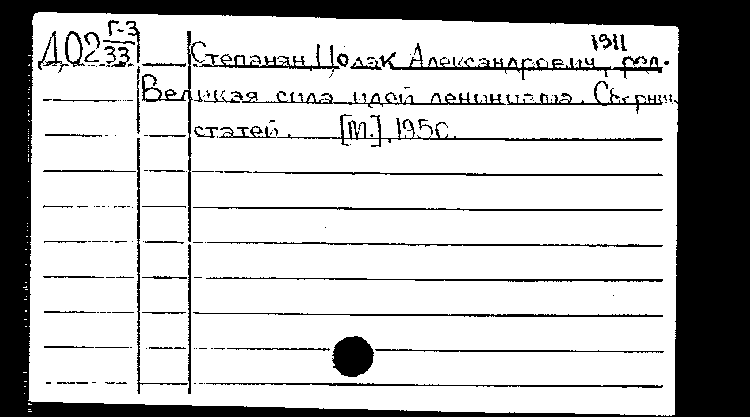 Д02 Г-3/33 Степанян Цолак Александрович, 1911 ред.
Великая сила идей ленинизма. Сборник
статей. [М.], 1950.